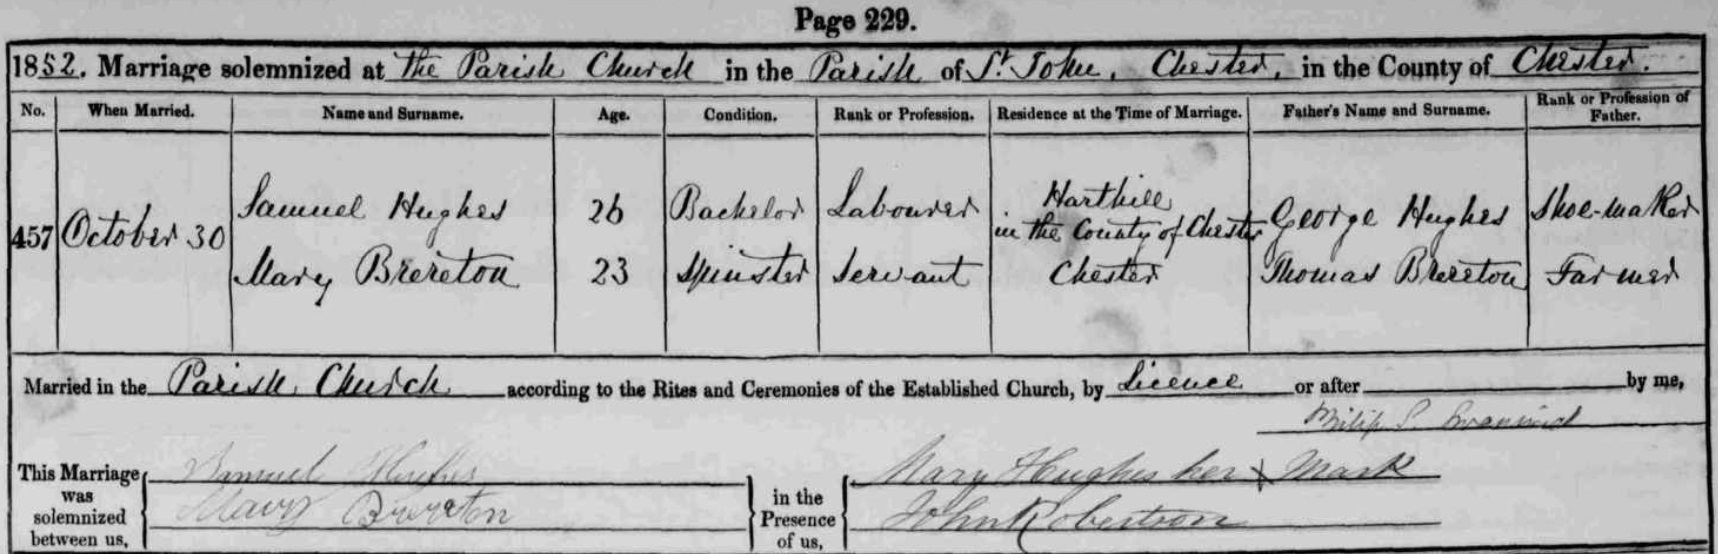 Page 229.
1852. Marriage solemnized at the Parish Church in the Parish of St. John, Chester, in the County of Chester.
No. When Married. Name and Surname. Age. Condition. Rank or Profession. Residence at the Time of Marriage. Father's Name and Surname. Rank or Profession of Father.
457 October 30
Samuel Hughes 26 Bachelor Labourer Harthill in the County of Chester George Hughes Shoe-maker
Mary Brereton 23 Spinster Servant Chester Thomas Brereton Farmer
Married in the Parish Church according to the Rites and Ceremonies of the Established Church, by Licence or after by me,
Philip S.
This Marriage was solemnized between us,
Samuel Hughes
Mary Brereton
in the Presence of us,
Mary Hughes her x Mark
John Robertson